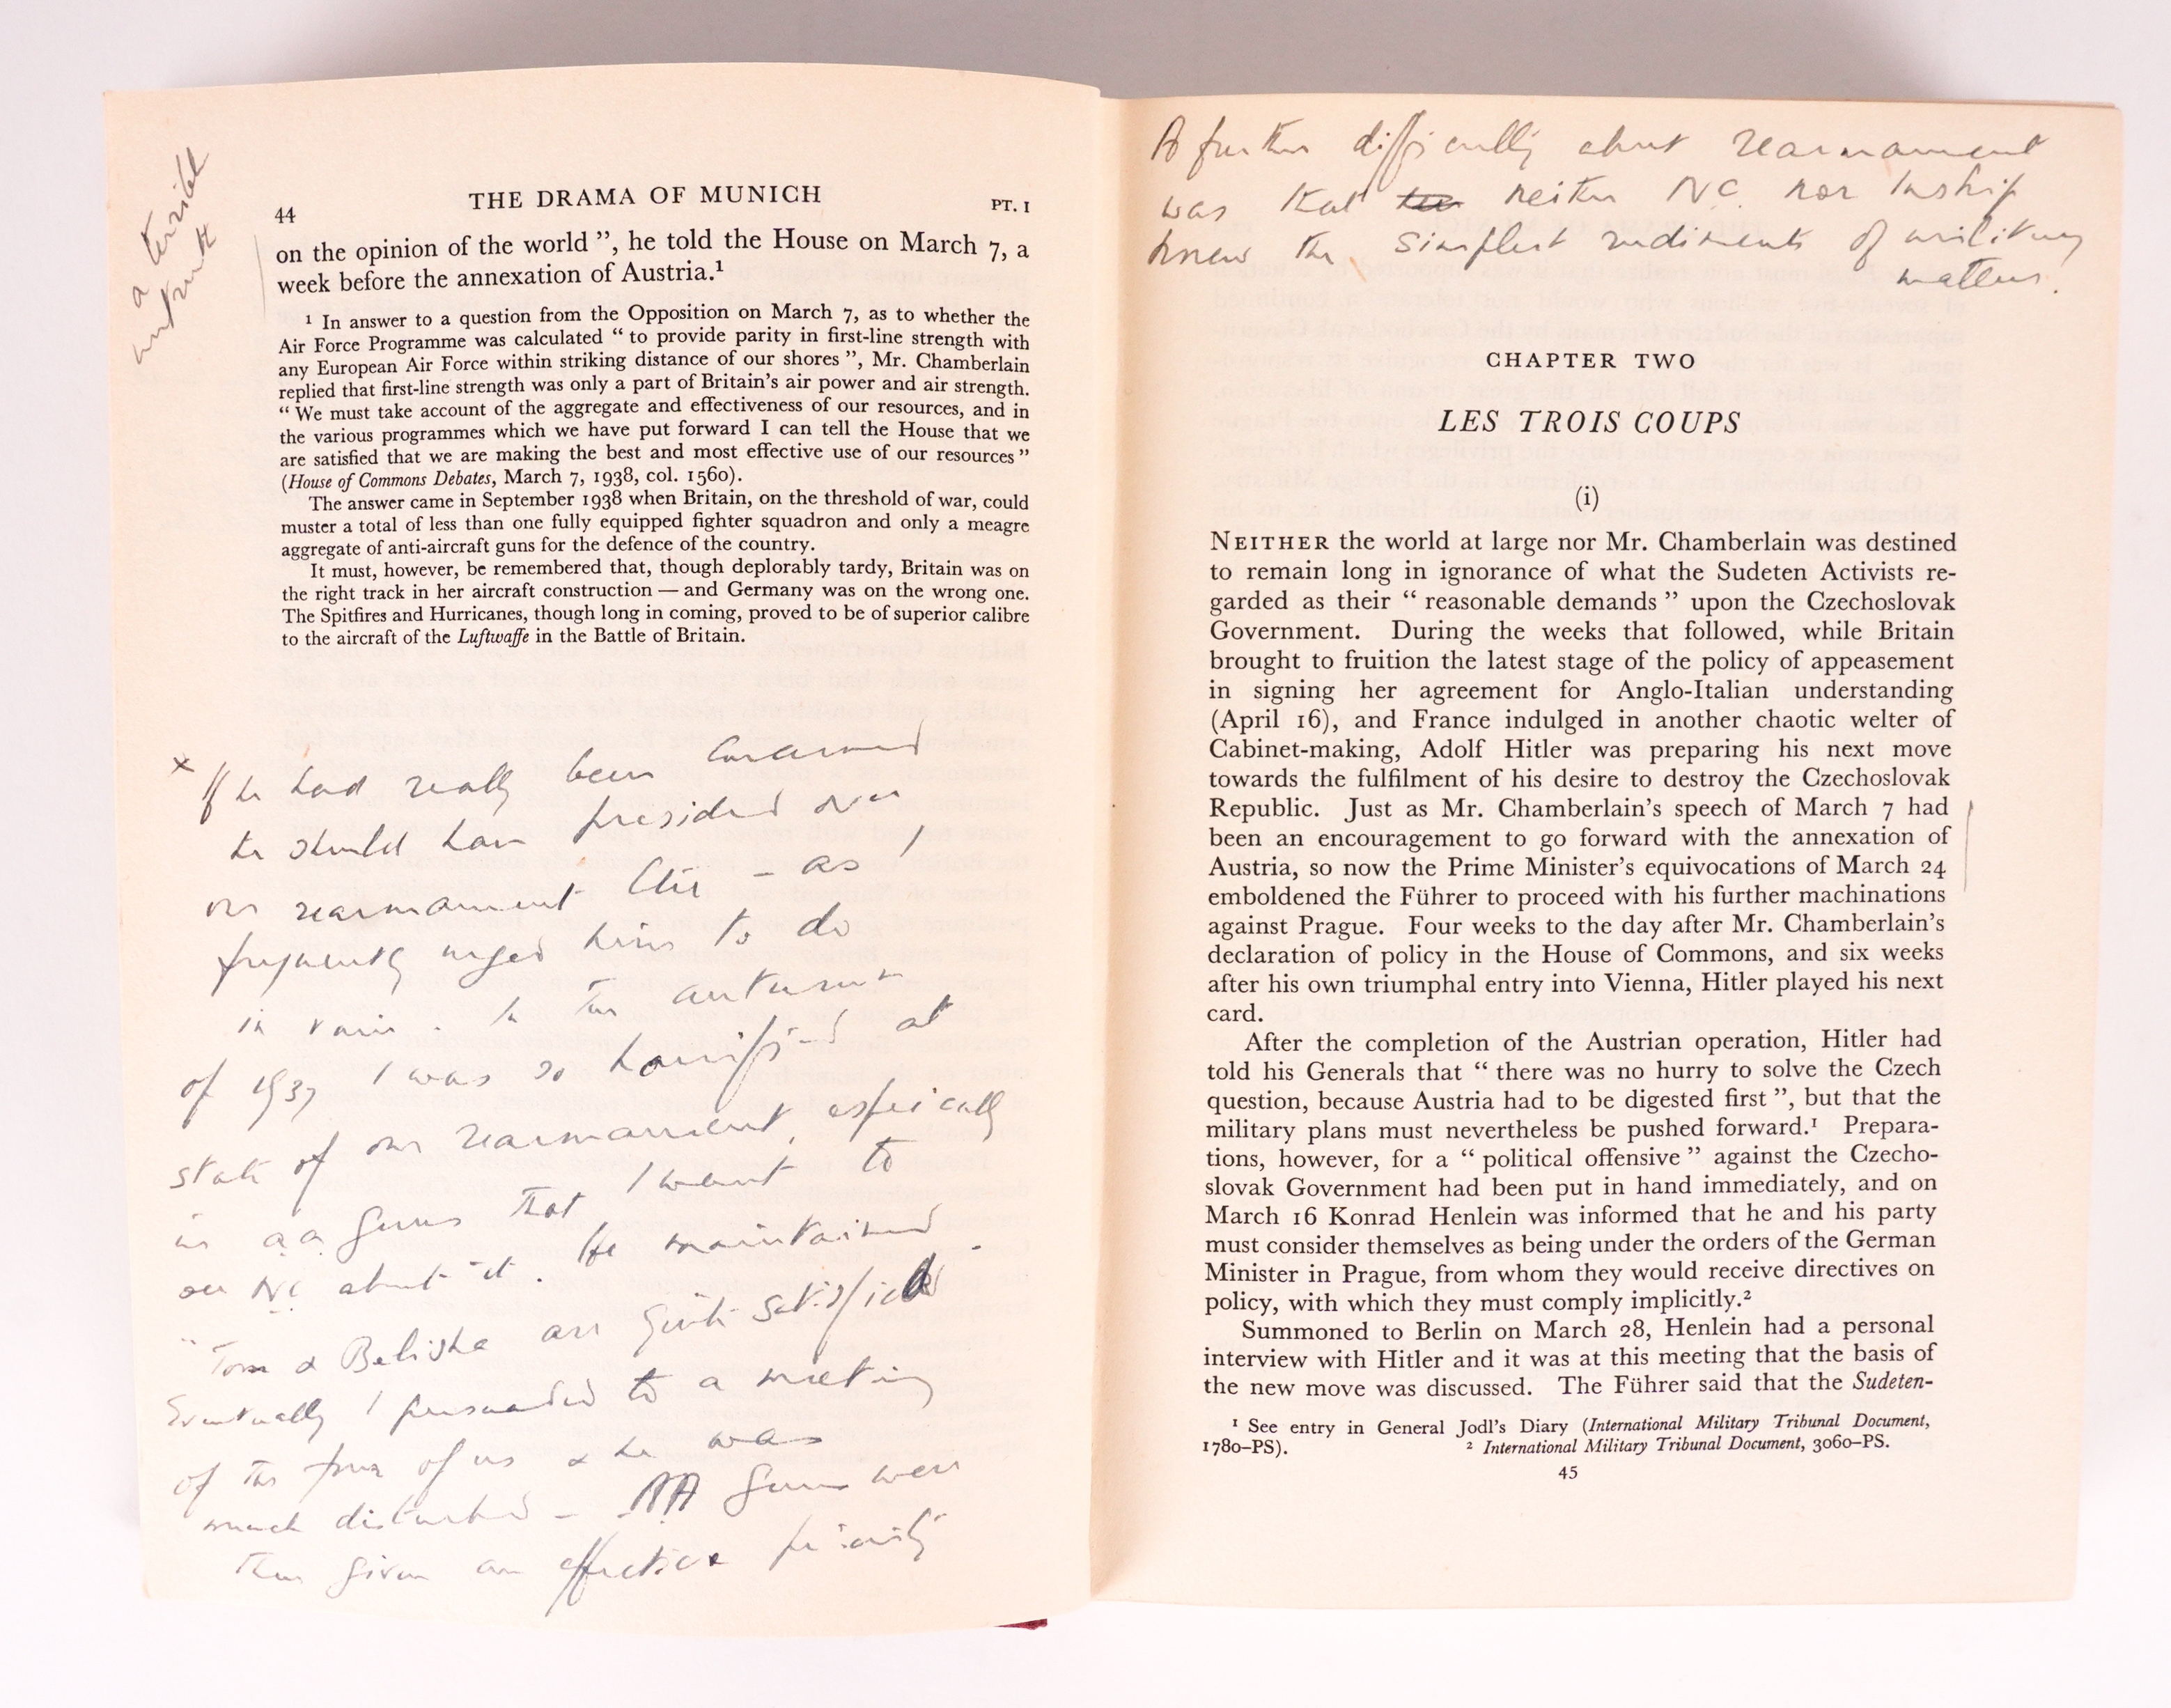 a terrible
untruth
44 THE DRAMA OF MUNICH PT. I
on the opinion of the world ”, he told the House on March 7, a
week before the annexation of Austria.¹
¹ In answer to a question from the Opposition on March 7, as to whether the
Air Force Programme was calculated “ to provide parity in first-line strength with
any European Air Force within striking distance of our shores ”, Mr. Chamberlain
replied that first-line strength was only a part of Britain’s air power and air strength.
“ We must take account of the aggregate and effectiveness of our resources, and in
the various programmes which we have put forward I can tell the House that we
are satisfied that we are making the best and most effective use of our resources ”
(House of Commons Debates, March 7, 1938, col. 1560).
The answer came in September 1938 when Britain, on the threshold of war, could
muster a total of less than one fully equipped fighter squadron and only a meagre
aggregate of anti-aircraft guns for the defence of the country.
It must, however, be remembered that, though deplorably tardy, Britain was on
the right track in her aircraft construction — and Germany was on the wrong one.
The Spitfires and Hurricanes, though long in coming, proved to be of superior calibre
to the aircraft of the Luftwaffe in the Battle of Britain.
x If he had really been concerned
he should have presided over
our rearmament Cttee – as I
frequently urged him to do
in vain. In the autumn
of 1937 I was so horrified at
state of our rearmament, especially
in a.a. guns that I went to
see N.C. about it. He maintained
“Tom & Belisha are quite satisfied.
Eventually I persuaded to a meeting
of the four of us & he was
much disturbed – AA guns were
then given an effective priority
A further difficulty about rearmament
was that neither N.C. nor Inskip
knew the simplest rudiments of military
matters.
CHAPTER TWO
LES TROIS COUPS
(i)
NEITHER the world at large nor Mr. Chamberlain was destined
to remain long in ignorance of what the Sudeten Activists re-
garded as their “ reasonable demands ” upon the Czechoslovak
Government. During the weeks that followed, while Britain
brought to fruition the latest stage of the policy of appeasement
in signing her agreement for Anglo-Italian understanding
(April 16), and France indulged in another chaotic welter of
Cabinet-making, Adolf Hitler was preparing his next move
towards the fulfilment of his desire to destroy the Czechoslovak
Republic. Just as Mr. Chamberlain’s speech of March 7 had
been an encouragement to go forward with the annexation of
Austria, so now the Prime Minister’s equivocations of March 24
emboldened the Führer to proceed with his further machinations
against Prague. Four weeks to the day after Mr. Chamberlain’s
declaration of policy in the House of Commons, and six weeks
after his own triumphal entry into Vienna, Hitler played his next
card.
After the completion of the Austrian operation, Hitler had
told his Generals that “ there was no hurry to solve the Czech
question, because Austria had to be digested first ”, but that the
military plans must nevertheless be pushed forward.¹ Prepara-
tions, however, for a “ political offensive ” against the Czecho-
slovak Government had been put in hand immediately, and on
March 16 Konrad Henlein was informed that he and his party
must consider themselves as being under the orders of the German
Minister in Prague, from whom they would receive directives on
policy, with which they must comply implicitly.²
Summoned to Berlin on March 28, Henlein had a personal
interview with Hitler and it was at this meeting that the basis of
the new move was discussed. The Führer said that the Sudeten-
¹ See entry in General Jodl’s Diary (International Military Tribunal Document,
1780–PS). ² International Military Tribunal Document, 3060–PS.
45